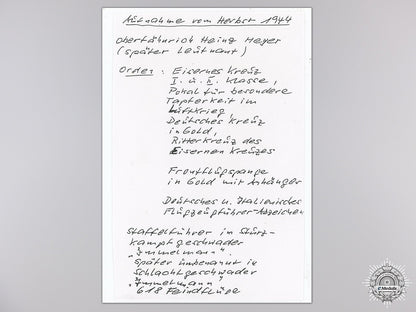 Aufnahme vom Herbst 1944
Oberfähnrich Heinz Meyer
(später Leutnant)
Orden: Eisernes Kreuz
I. u. II. Klasse,
Pokal für besondere
Tapferkeit im
Luftkrieg
Deutsches Kreuz
in Gold,
Ritterkreuz des
Eisernen Kreuzes
Frontflugspange
in Gold mit Anhänger
Deutsches u. Italienisches
Flugzeugführer-Abzeichen
Staffelführer im Sturz-
kampfgeschwader
"Immelmann".
später umbenannt in
Schlachtgeschwader
"Immelmann"
618 Feindflüge